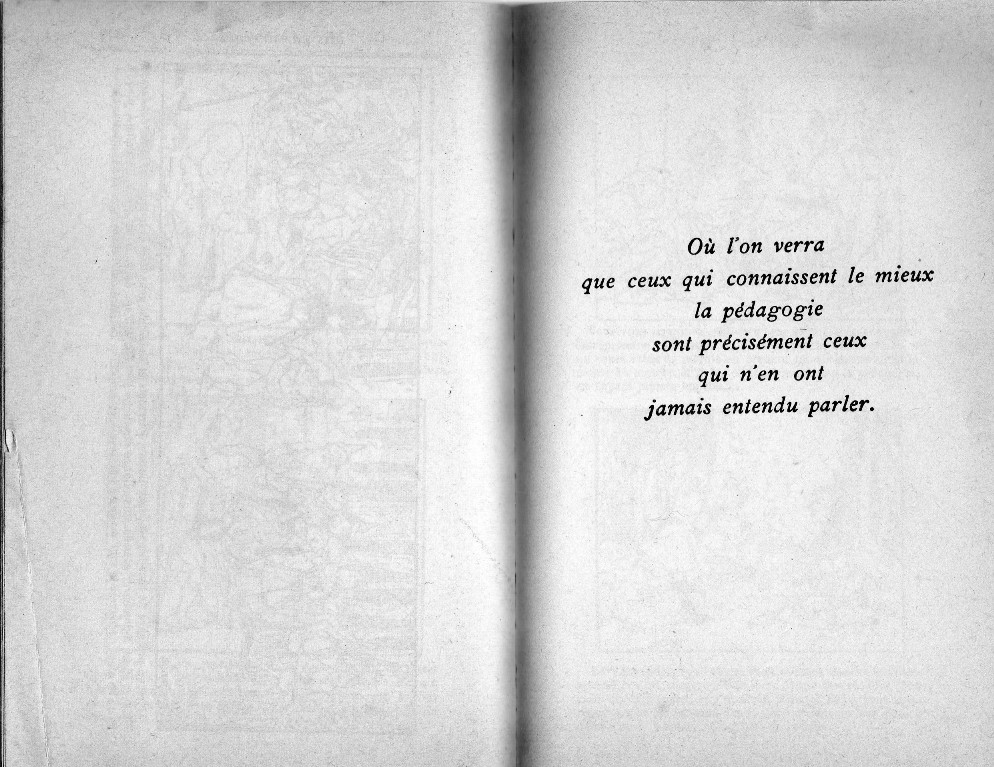 Où l'on verra
que ceux qui connaissent le mieux
la pédagogie
sont précisément ceux
qui n'en ont
jamais entendu parler.